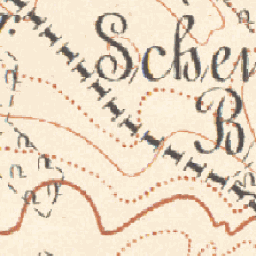 Schev
B